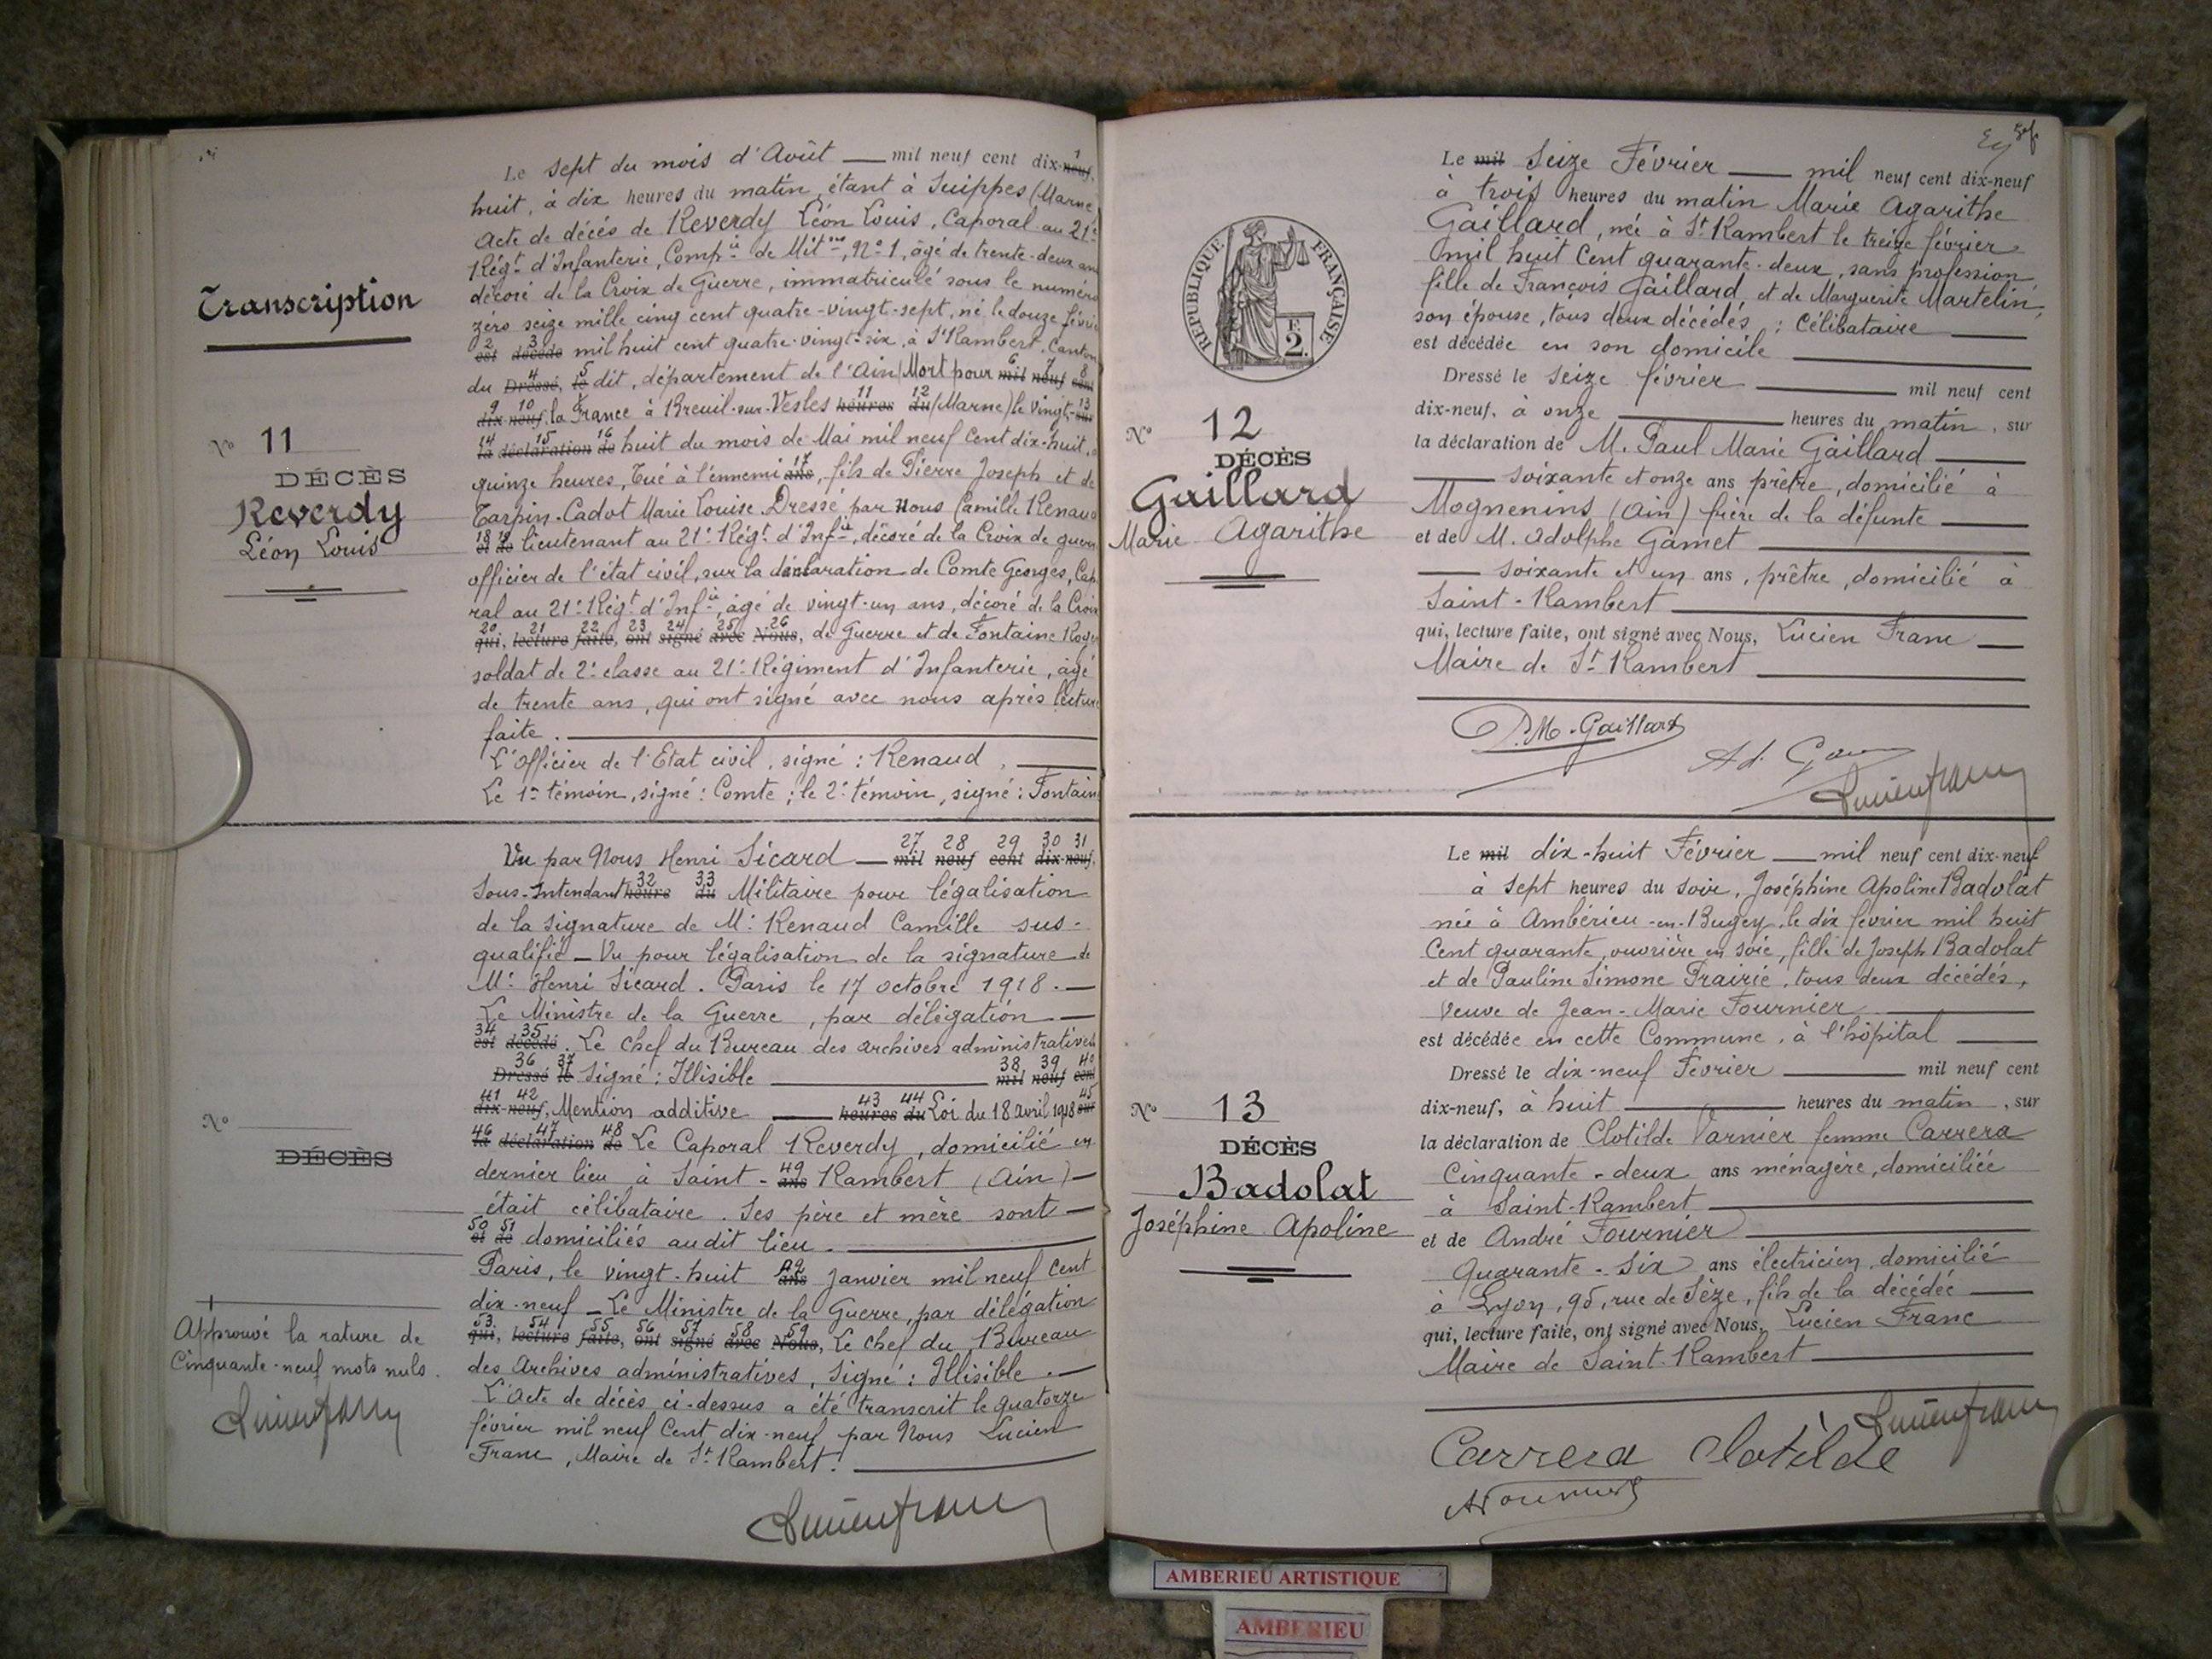 Transcription
N° 11
DÉCÈS
Reverdy
Léon Louis
Le sept du mois d'Août — mil neuf cent dix-neuf, 1
huit, à dix heures du matin, étant à Suippes (Marne
Acte de décès de Reverdy Léon Louis, Caporal au 21e
Régt d'Infanterie, Compie de Mitses, N° 1, âgé de trente-deux ans
décoré de la Croix de Guerre, immatriculé sous le numéro
zéro seize mille cinq cent quatre-vingt-sept, né le douze févri
2 3 est décédé mil huit cent quatre-vingt-six, à St Rambert, Canton
du 4 5 Dressé, le dit, département de l'Ain, Mort pour 6 7 8 mil neuf cent
9 10 dix-neuf, la France à Breuil-sur-Vesles 11 12 heures du (Marne) le vingt- 13 sur
14 15 16 la déclaration de huit du mois de Mai mil neuf cent dix-huit, à
quinze heures, Tué à l'ennemi 17 ans, fils de Pierre Joseph et de
Tarpin-Cadot Marie Louise. Dressé par Nous Camille Renaud
18 19 et de lieutenant au 21e Régt d'Infie, décoré de la Croix de guerre
officier de l'état civil, sur la déclaration de Comte Georges, Cap
ral au 21e Régt d'Infie, âgé de vingt-un ans, décoré de la Croix
20 21 22 23 24 25 26 qui, lecture faite, ont signé avec Nous, de Guerre et de Fontaine Roger
soldat de 2e classe au 21e Régiment d'Infanterie, âgé
de trente ans, qui ont signé avec nous après lecture
faite.
L'Officier de l'Etat civil, signé : Renaud,
Le 1er témoin, signé : Comte ; le 2e témoin, signé : Fontaine
N°
DÉCÈS
Vu par Nous Henri Sicard — 27 28 29 30 31 mil neuf cent dix-neuf,
Sous-Intendant 32 33 heure du Militaire pour légalisation
de la signature de Mr Renaud Camille sus-
qualifié — Vu pour légalisation de la signature de
Mr Henri Sicard. Paris le 17 octobre 1918. —
Le Ministre de la Guerre, par délégation —
34 35 est décédé. Le Chef du Bureau des archives administratives
36 37 Dressé le Signé : Illisible — 38 39 40 mil neuf cent
41 42 dix-neuf, Mention additive — 43 44 heures du Loi du 18 avril 1918 45 sur
46 47 48 la déclaration de Le Caporal Reverdy, domicilié en
dernier lieu à Saint- 49 ans Rambert (Ain) —
était célibataire. Ses père et mère sont —
50 51 et de domiciliés audit lieu.
Paris, le vingt-huit 52 ans Janvier mil neuf Cent
dix-neuf — Le Ministre de la Guerre, par délégation
53 54 55 56 57 58 59 qui, lecture faite, ont signé avec Nous, Le chef du Bureau
des Archives administratives, Signé : Illisible. —
L'Acte de décès ci-dessus a été transcrit le quatorze
février mil neuf Cent dix-neuf par Nous Lucien
Franc, Maire de St Rambert.
Approuvé la rature de
Cinquante-neuf mots nuls.
Lucien Franc
Lucien Franc
RÉPUBLIQUE FRANÇAISE
F.
2.
N° 12
DÉCÈS
Gaillard
Marie Agarithe
Le mil Seize Février — mil neuf cent dix-neuf
à trois heures du matin Marie Agarithe
Gaillard, née à St Rambert le treize février
mil huit Cent quarante-deux, sans profession,
fille de François Gaillard, et de Marguerite Martelin,
son épouse, tous deux décédés ; Célibataire
est décédée en son domicile
Dressé le Seize février — mil neuf cent
dix-neuf, à onze — heures du matin, sur
la déclaration de M. Paul Marie Gaillard
— soixante et onze ans prêtre, domicilié à
Mognenins (Ain) frère de la défunte
et de M. Adolphe Gamet
— soixante et un ans, prêtre, domicilié à
Saint-Rambert
qui, lecture faite, ont signé avec Nous, Lucien Franc —
Maire de St Rambert
P.M. Gaillard
Lucien Franc
N° 13
DÉCÈS
Badolat
Joséphine Apoline
Le mil dix-huit Février — mil neuf cent dix-neuf
à sept heures du soir, Joséphine Apoline Badolat
née à Ambérieu-en-Bugey, le dix février mil huit
Cent quarante, ouvrière en soie, fille de Joseph Badolat
et de Pauline Simone Prairie, tous deux décédés,
Veuve de Jean-Marie Fournier
est décédée en cette Commune, à l'hôpital
Dressé le dix-neuf Février — mil neuf cent
dix-neuf, à huit — heures du matin, sur
la déclaration de Clotilde Varnier femme Carrera
Cinquante-deux ans ménagère, domiciliée
à Saint-Rambert
et de André Fournier
Quarante-six ans électricien, domicilié
à Lyon, 95, rue de Sèze, fils de la décédée
qui, lecture faite, ont signé avec Nous, Lucien Franc
Maire de Saint-Rambert
Lucien Franc
Carrera Clotilde
A Fournier
AMBERIEU ARTISTIQUE
AMBERIEU